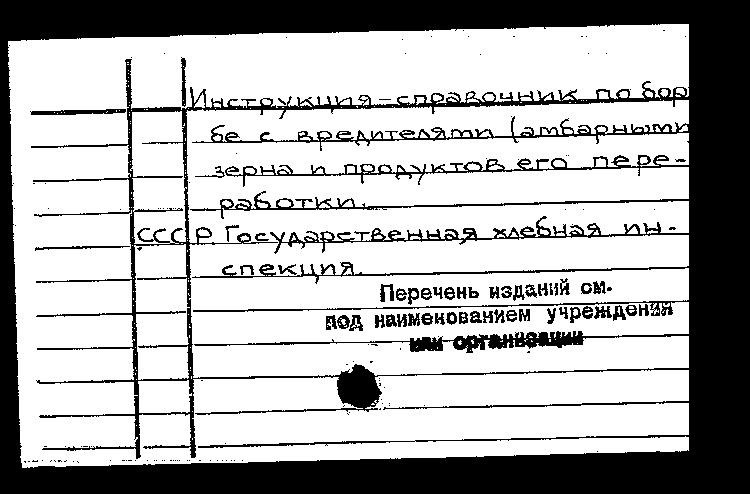 Инструкция-справочник по бор
бе с вредителями (амбарными
зерна и продуктов его пере-
работки.
СССР. Государственная хлебная ин-
спекция.
Перечень изданий см.
под наименованием учреждения
или организации